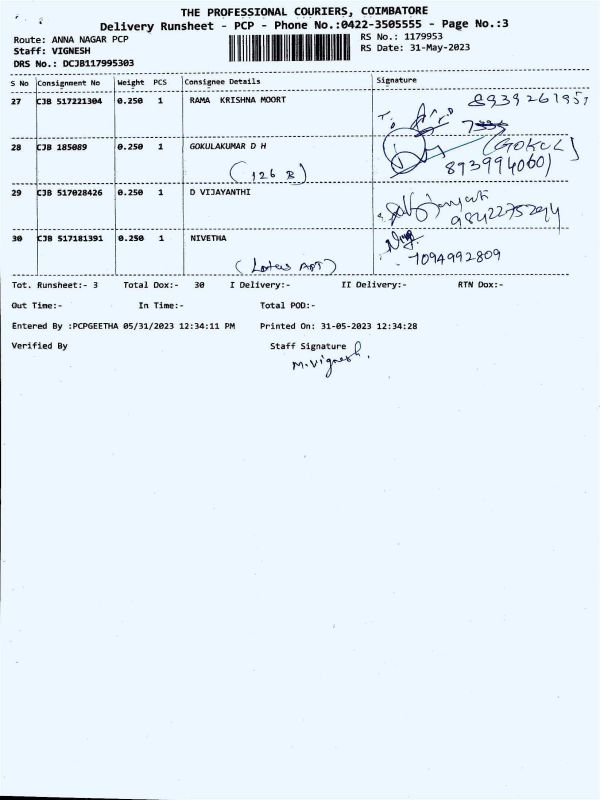 THE PROFESSIONAL COURIERS, COIMBATORE
Delivery Runsheet - PCP - Phone No.:0422-3505555 - Page No.:3
Route: ANNA NAGAR PCP
RS No.: 1179953
Staff: VIGNESH
RS Date: 31-May-2023
DRS No.: DCJB117995303
S No Consignment No Weight PCS Consignee Details Signature
27 CJB 517221304 0.250 1 RAMA KRISHNA MOORT
8939261957
28 CJB 185089 0.250 1 GOKULAKUMAR D H (GOKUL)
(126 B) 8939940601
29 CJB 517028426 0.250 1 D VIJAYANTHI
9842275294
30 CJB 517181391 0.250 1 NIVETHA
(Lotus APT) 7094992809
Tot. Runsheet:- 3 Total Dox:- 30 I Delivery:- II Delivery:- RTN Dox:-
Out Time:- In Time:- Total POD:-
Entered By :PCPGEETHA 05/31/2023 12:34:11 PM Printed On: 31-05-2023 12:34:28
Verified By Staff Signature
M.Vignesh.